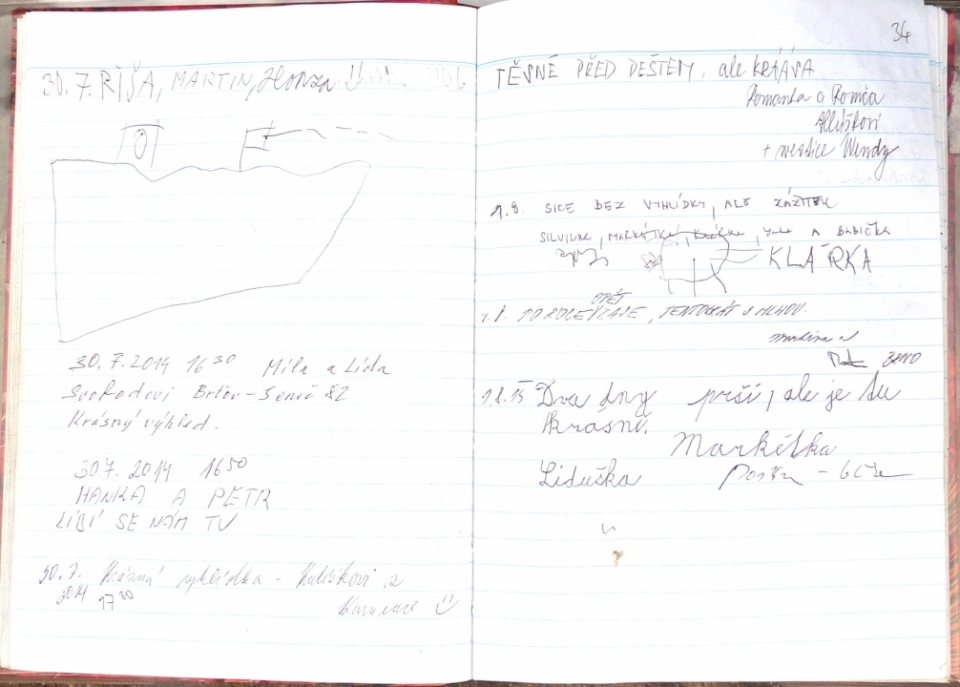 30.7. ŘÍŠA, MARTIN, Honza
30.7.2014 16 30 Míla a Lída
Svobodovi Brťov-Jeneč 82
Krásný výhled.
30.7. 2014 16 50
HANKA A PETR
LÍBÍ SE NÁM TU
30.7. Krásná vyhlídka -
2014 17 30
34
TĚSNĚ PŘED DEŠTĚM, ale KRÁÁSA
Romanka a Romča
+ Wendy
1.8. SICE BEZ VYHLÍDKY, ALE ZÁŽITEK
SILVINKA, MARKÉTKA, A BABIČKA
KLÁRKA
OPĚT
1.8. PO ROCE, TENTOKRÁT S MLHOU.
BRNO
1.8.15 Dva dny prší, ale je tu
krásně.
Markétka
Liduška